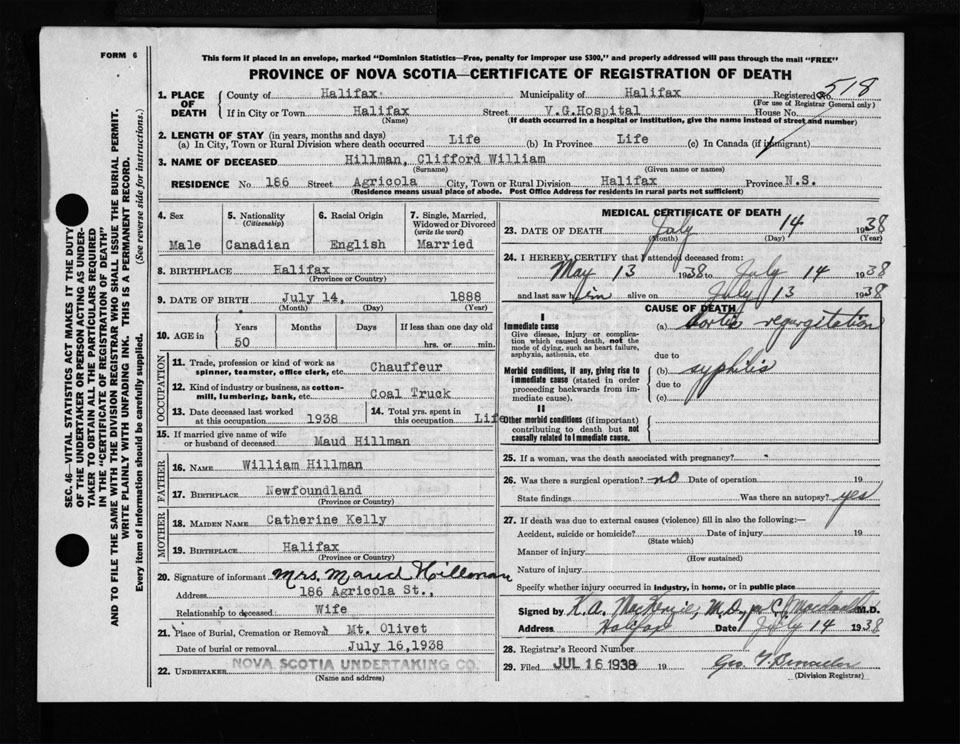 FORM 6
This form if placed in an envelope, marked "Dominion Statistics—Free, penalty for improper use $300," and properly addressed will pass through the mail "FREE"
PROVINCE OF NOVA SCOTIA—CERTIFICATE OF REGISTRATION OF DEATH
SEC. 46—VITAL STATISTICS ACT MAKES IT THE DUTY
OF THE UNDERTAKER OR PERSON ACTING AS UNDER-
TAKER TO OBTAIN ALL THE PARTICULARS REQUIRED
IN THE "CERTIFICATE OF REGISTRATION OF DEATH"
AND TO FILE THE SAME WITH THE DIVISION REGISTRAR WHO SHALL ISSUE THE BURIAL PERMIT.
WRITE PLAINLY WITH UNFADING INK. THIS IS A PERMANENT RECORD.
Every item of information should be carefully supplied. (See reverse side for instructions.)
1. PLACE OF DEATH
County of Halifax Municipality of Halifax Registered No. 518
(For use of Registrar General only)
If in City or Town Halifax Street V.G.Hospital House No.
(Name) (If death occurred in a hospital or institution, give the name instead of street and number)
2. LENGTH OF STAY (in years, months and days)
(a) In City, Town or Rural Division where death occurred Life (b) In Province Life (c) In Canada (if immigrant)
3. NAME OF DECEASED Hillman, Clifford William
(Surname) (Given name or names)
RESIDENCE No 186 Street Agricola City, Town or Rural Division Halifax Province N.S.
(Residence means usual place of abode. Post Office Address for residents in rural parts not sufficient)
4. Sex 5. Nationality (Citizenship) 6. Racial Origin 7. Single, Married, Widowed or Divorced (write the word)
Male Canadian English Married
8. BIRTHPLACE Halifax
(Province or Country)
9. DATE OF BIRTH July 14, 1888
(Month) (Day) (Year)
10. AGE in Years Months Days If less than one day old
50 hrs. or min.
OCCUPATION
11. Trade, profession or kind of work as
spinner, teamster, office clerk, etc. Chauffeur
12. Kind of industry or business, as cotton-
mill, lumbering, bank, etc. Coal Truck
13. Date deceased last worked
at this occupation 1938
14. Total yrs. spent in
this occupation Life
15. If married give name of wife
or husband of deceased Maud Hillman
FATHER
16. NAME William Hillman
17. BIRTHPLACE Newfoundland
(Province or Country)
MOTHER
18. MAIDEN NAME Catherine Kelly
19. BIRTHPLACE Halifax
(Province or Country)
20. Signature of informant Mrs. Maud Hillman
Address 186 Agricola St.,
Relationship to deceased Wife
21. Place of Burial, Cremation or Removal Mt. Olivet
Date of burial or removal July 16,1938
22. UNDERTAKER NOVA SCOTIA UNDERTAKING CO.
(Name and address)
MEDICAL CERTIFICATE OF DEATH
23. DATE OF DEATH July 14 1938
(Month) (Day) (Year)
24. I HEREBY CERTIFY that I attended deceased from:
May 13 1938 to July 14 1938
and last saw him alive on July 13 1938
CAUSE OF DEATH
I
Immediate cause
Give disease, injury or complica-
tion which caused death, not the
mode of dying, such as heart failure,
asphyxia, asthenia, etc
(a) Aortic regurgitation
due to
Morbid conditions, if any, giving rise to
immediate cause (stated in order
proceeding backwards from im-
mediate cause).
(b) syphilis
due to
(c)
II
Other morbid conditions (if important)
contributing to death but not
causally related to immediate cause.
25. If a woman, was the death associated with pregnancy?
26. Was there a surgical operation? no Date of operation 19
State findings Was there an autopsy? yes
27. If death was due to external causes (violence) fill in also the following:—
Accident, suicide or homicide? Date of injury 19
(State which)
Manner of injury
(How sustained)
Nature of injury
Specify whether injury occurred in industry, in home, or in public place
Signed by K.A. MacKenzie, M.D, per C.J. M.D.
Address Halifax Date July 14 1938
28. Registrar's Record Number
29. Filed JUL 16 1938 19
(Division Registrar)